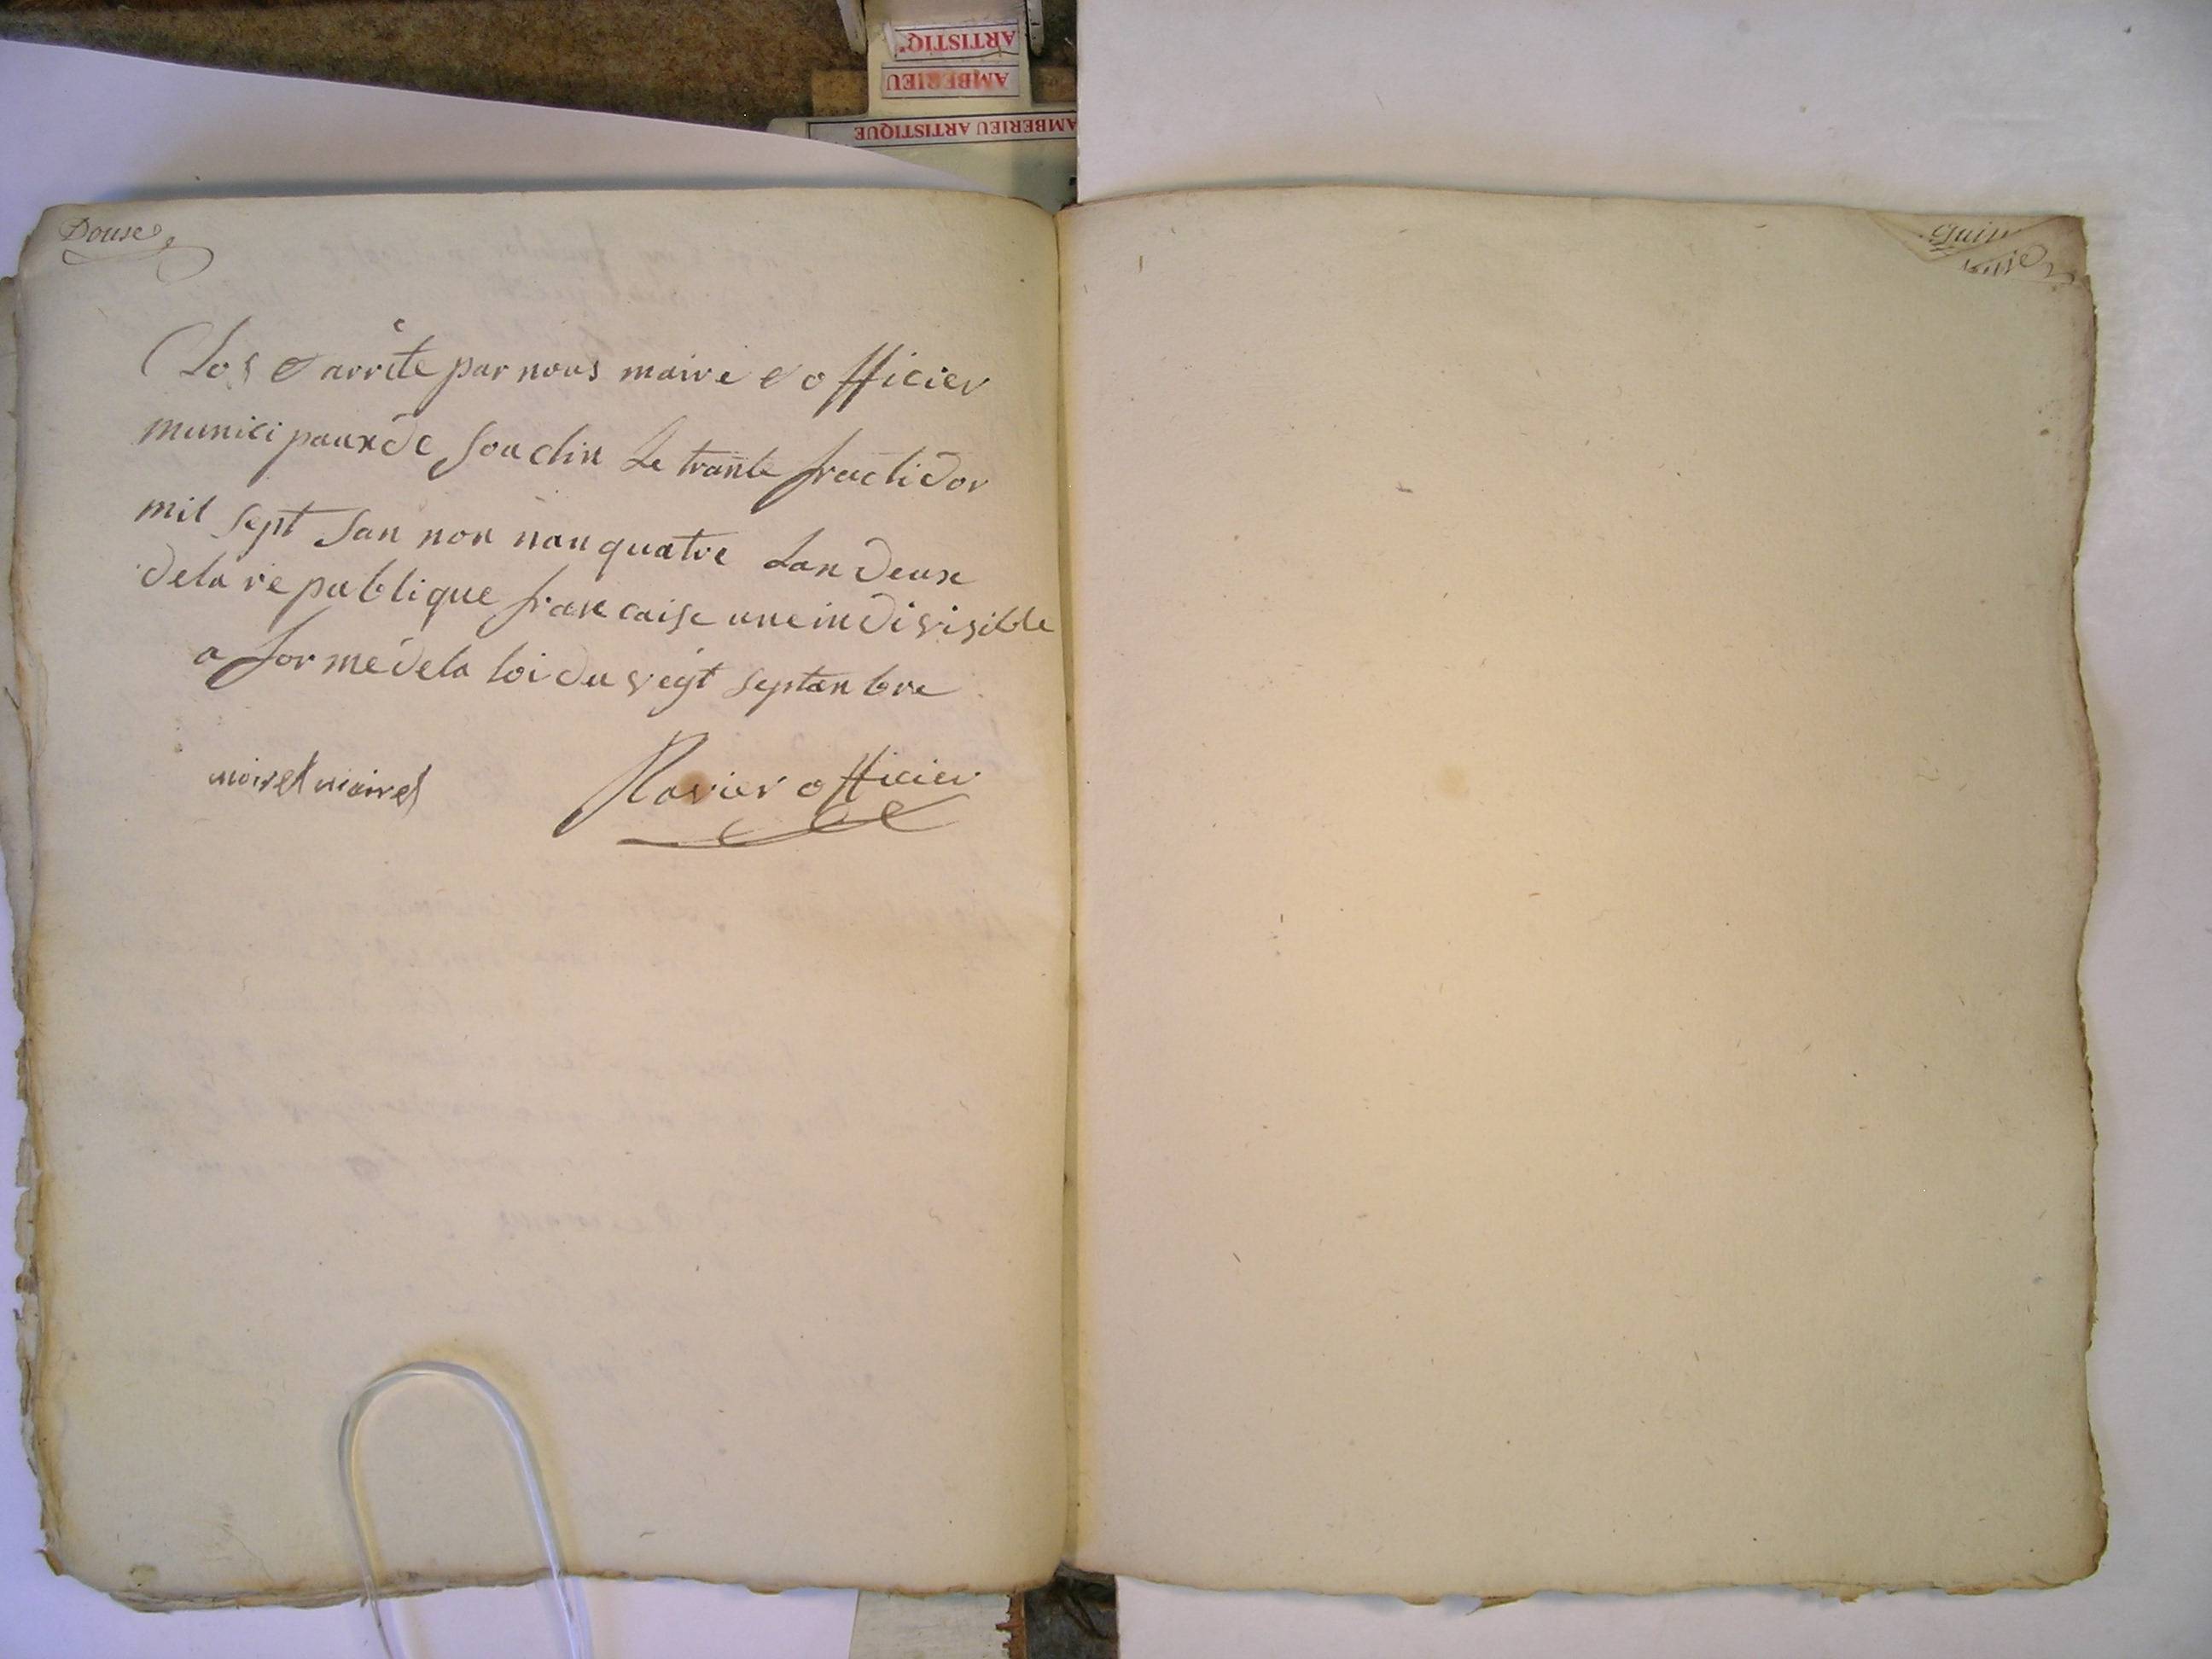 ARTISTIQ
AMBERIEU
AMBERIEU ARTISTIQUE
Douse
Clos & arrêté par nous maire & officier
municipaux de Souclin Le trante fructidor
mil sept San non nan quatre Lan deux
de la republique francaise une indivisible
a forme de la loi du vegt septanbre
moiret maire
Ravier officier